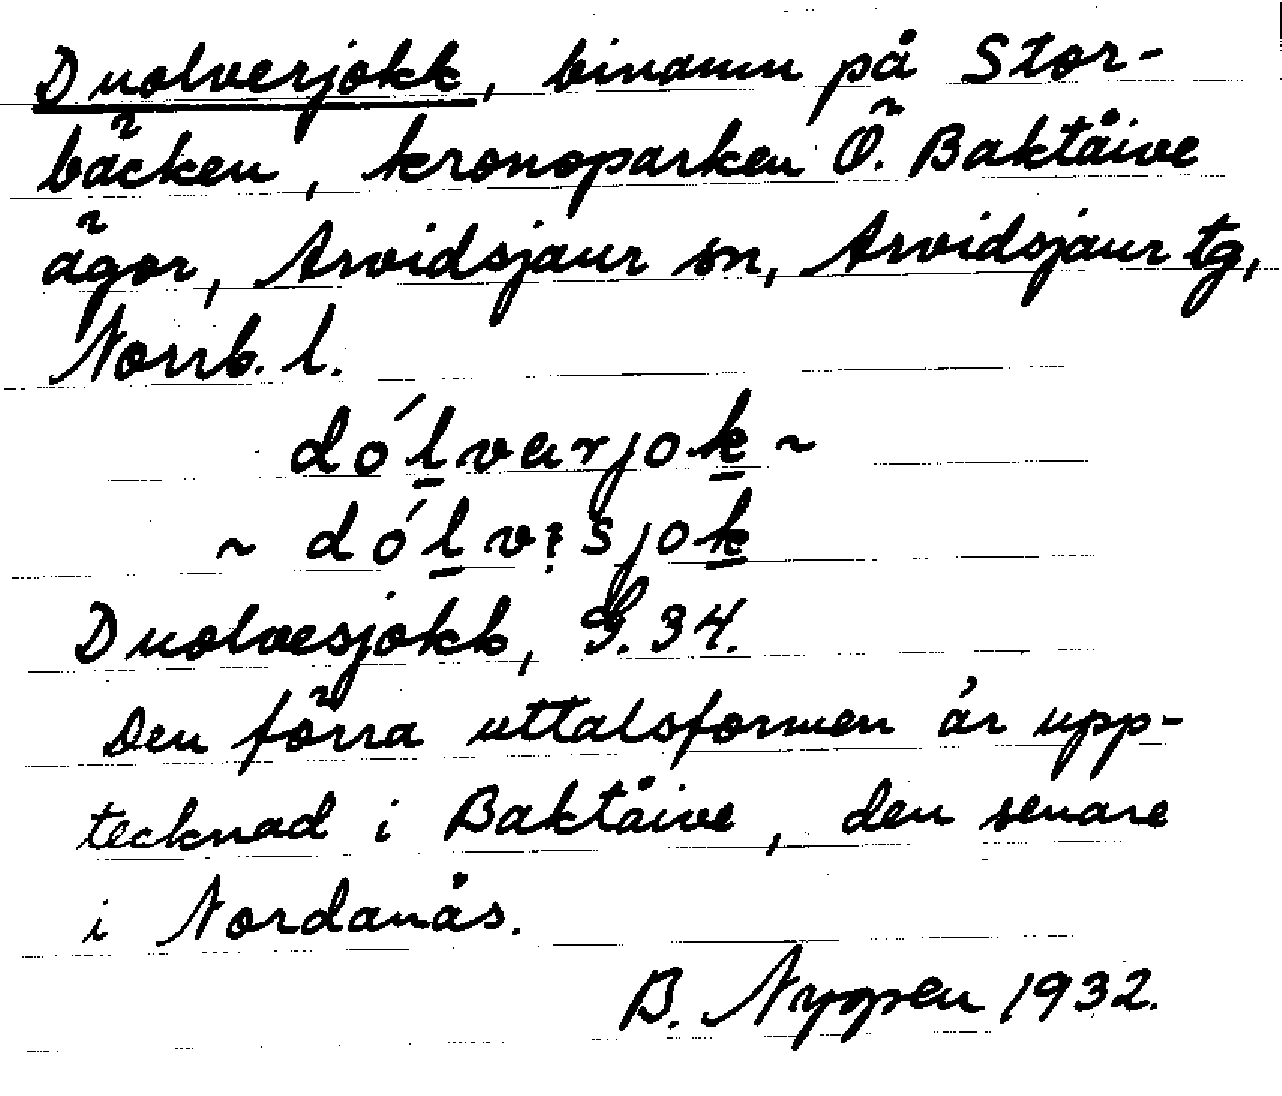 Duolverjokk, binamn på Stor-
bäcken, kronoparken Ö. Baktåive
ägor, Arvidsjaur sn, Arvidsjaur tg,
Norrb. l.
dólvarjok ~
~ dólvısjok
Duolvesjokk, G. 34.
Den förra uttalsformen är upp-
tecknad i Baktåive, den senare
i Nordanås.
B. Nygren 1932.